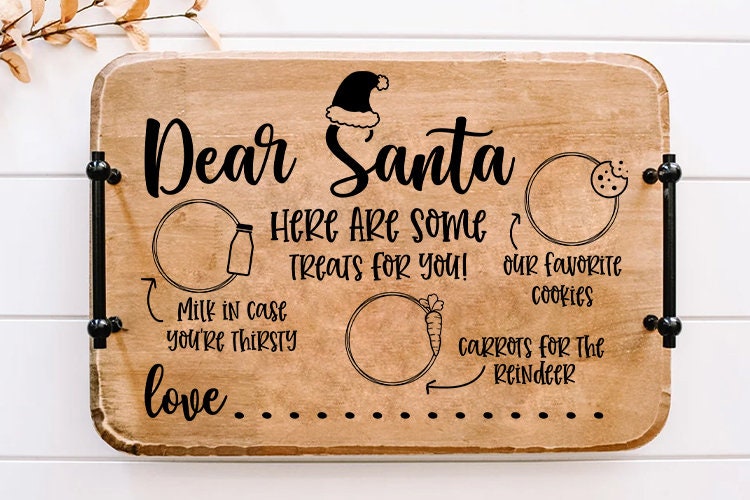 Dear Santa
HERE ARE SOME
TREATS FOR YOU!
OUR FAVORITE
COOKIES
MILK IN CASE
YOU'RE THIRSTY
CARROTS FOR THE
REINDEER
love................